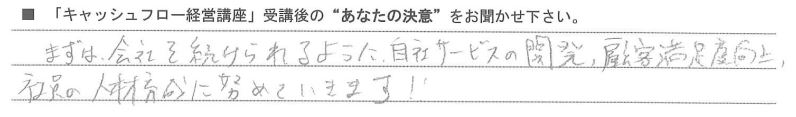 ■ 「キャッシュフロー経営講座」受講後の“あなたの決意”をお聞かせ下さい。
まずは、会社を続けられるように、自社サービスの開発、顧客満足度向上、
社員の人材育成に努めていきます!